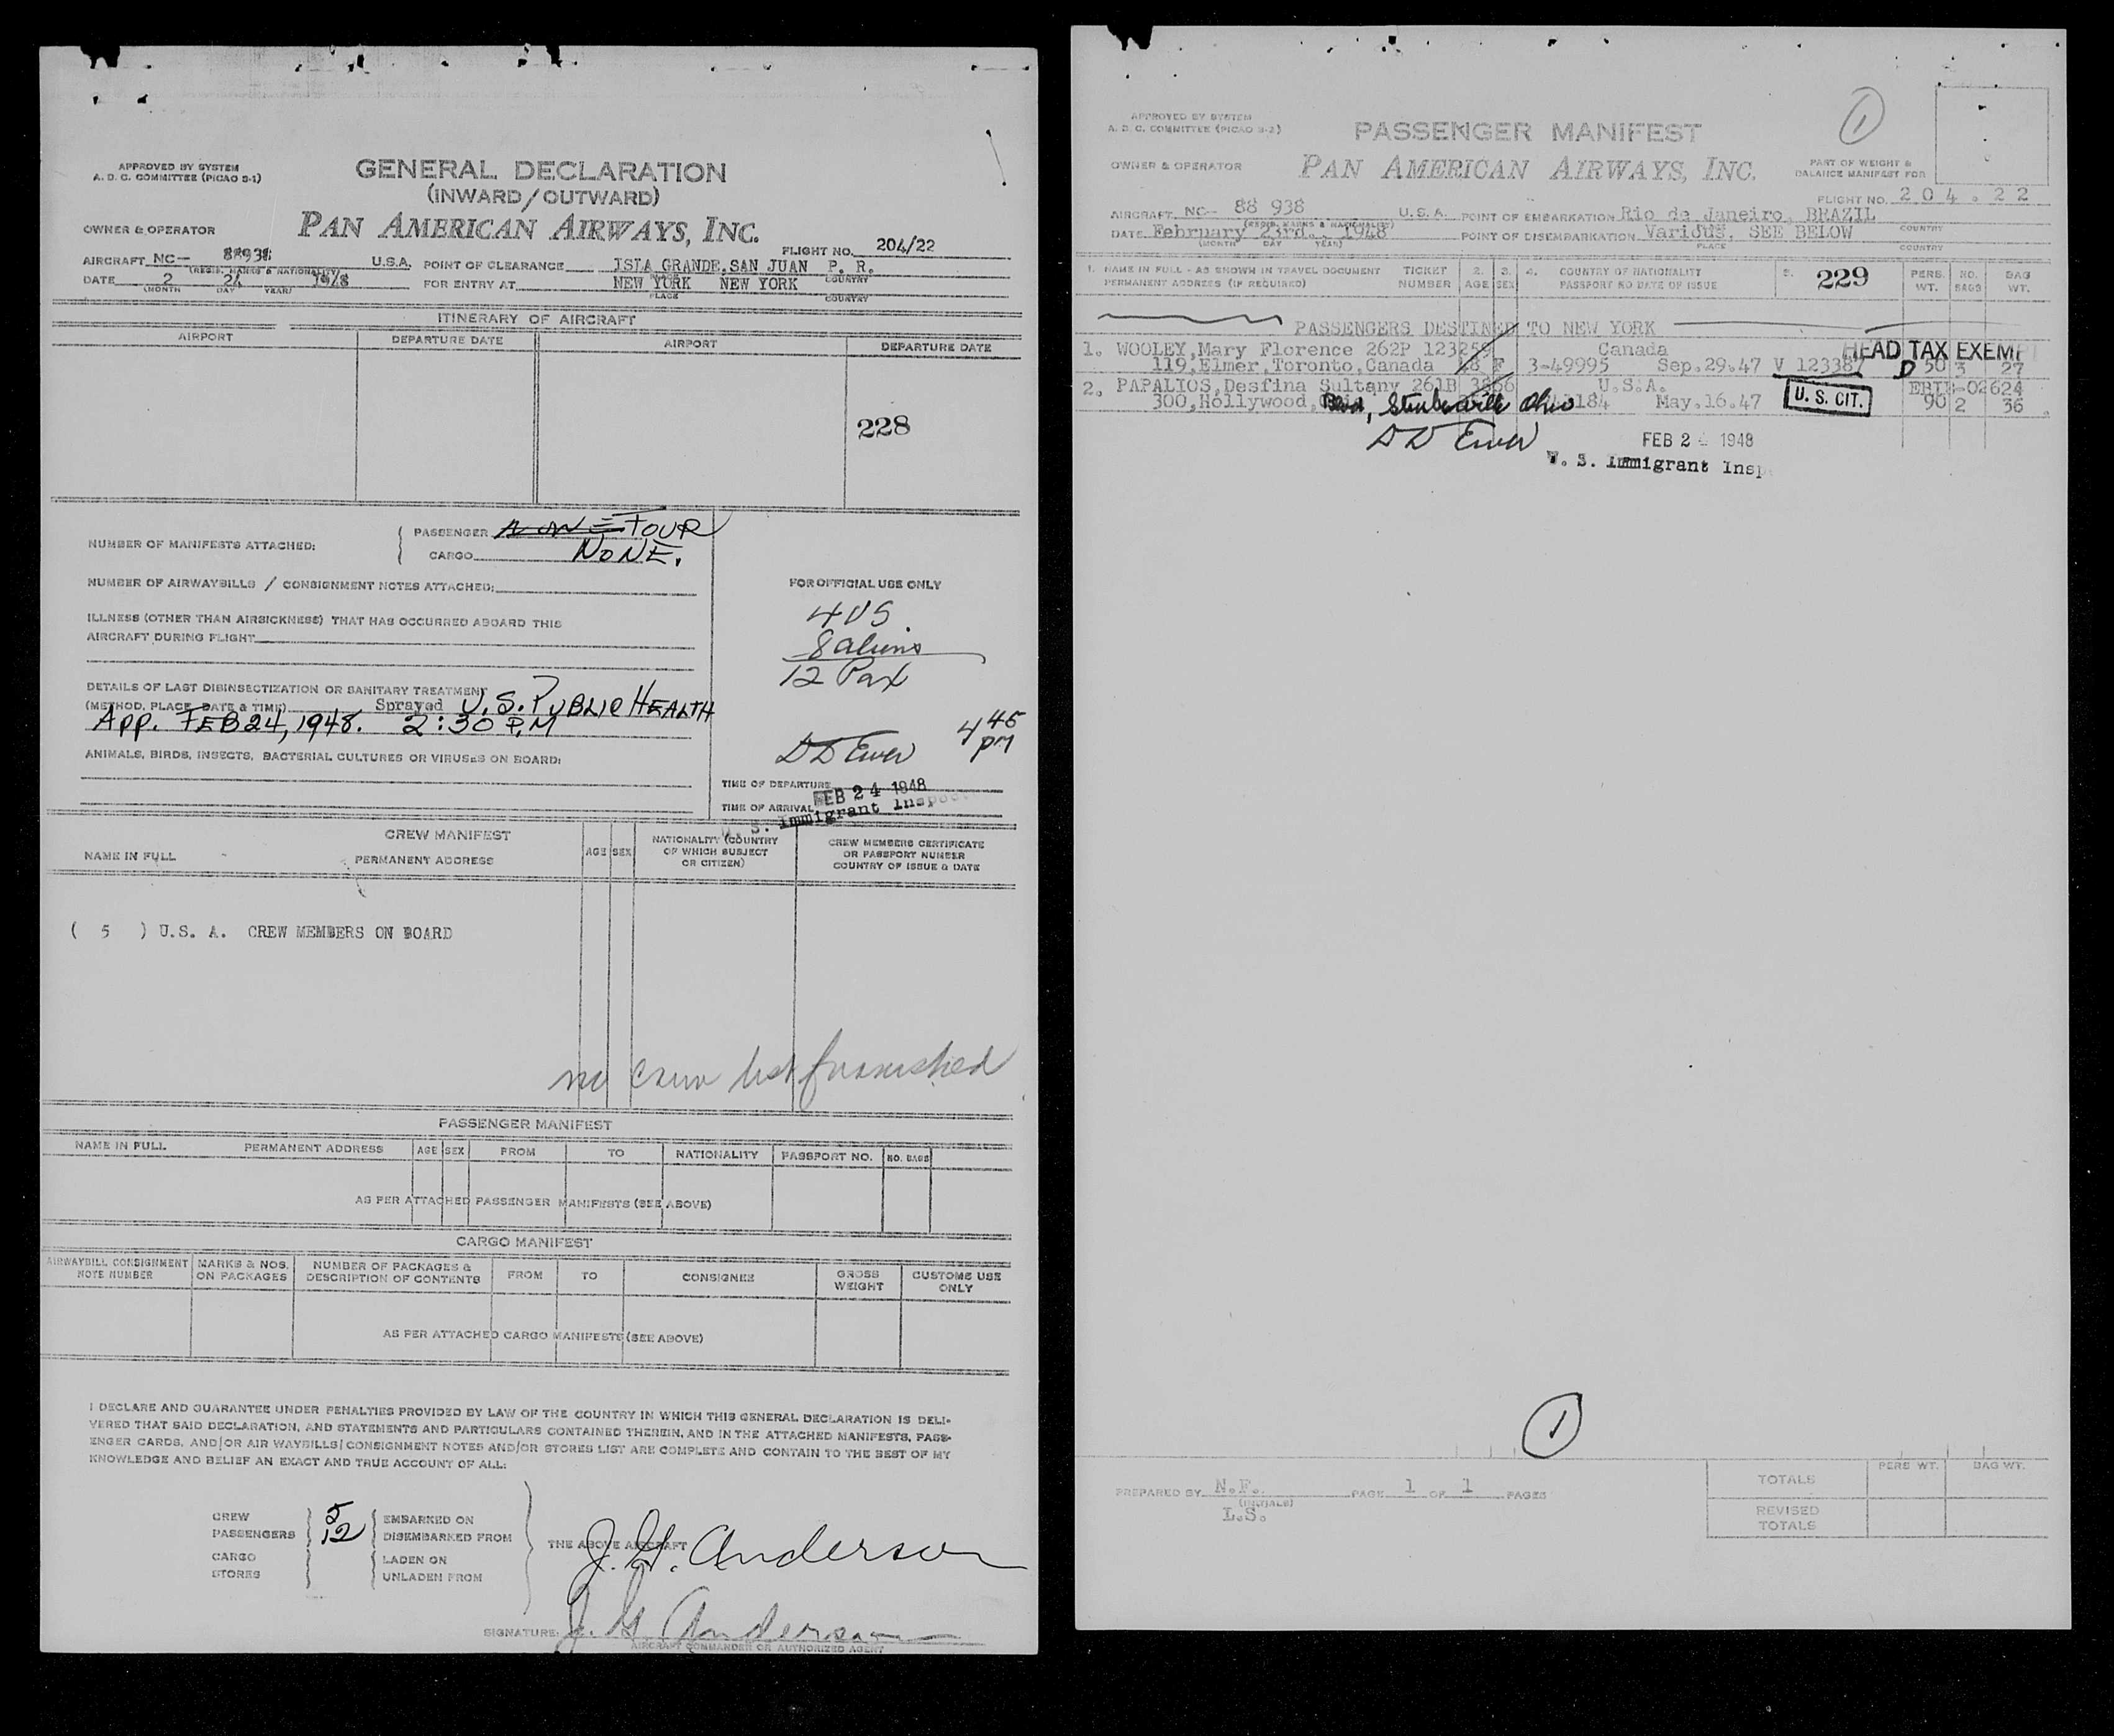 APPROVED BY SYSTEM
A. D. C. COMMITTEE (PICAO S-1)
GENERAL DECLARATION
(INWARD/OUTWARD)
OWNER & OPERATOR
PAN AMERICAN AIRWAYS, INC.
FLIGHT NO. 204/22
AIRCRAFT NC- 88938 U.S.A. POINT OF CLEARANCE ISLA GRANDE, SAN JUAN P. R.
(REGIS. MARKS & NATIONALITY) PLACE COUNTRY
DATE 2 24 1948 FOR ENTRY AT NEW YORK NEW YORK
(MONTH DAY YEAR) PLACE COUNTRY
ITINERARY OF AIRCRAFT
AIRPORT DEPARTURE DATE AIRPORT DEPARTURE DATE
228
NUMBER OF MANIFESTS ATTACHED: PASSENGER NONE FOUR
CARGO NONE.
NUMBER OF AIRWAYBILLS / CONSIGNMENT NOTES ATTACHED:
ILLNESS (OTHER THAN AIRSICKNESS) THAT HAS OCCURRED ABOARD THIS
AIRCRAFT DURING FLIGHT
DETAILS OF LAST DISINSECTIZATION OR SANITARY TREATMENT
(METHOD, PLACE, DATE & TIME) Sprayed U.S. PUBLIC HEALTH
App. FEB 24, 1948. 2:30 P.M
ANIMALS, BIRDS, INSECTS, BACTERIAL CULTURES OR VIRUSES ON BOARD:
FOR OFFICIAL USE ONLY
4 US
8 aliens
12 Pax
D D Ewer
4 45 pm
TIME OF DEPARTURE
FEB 24 1948
TIME OF ARRIVAL
U. S. Immigrant Inspector
CREW MANIFEST
NAME IN FULL PERMANENT ADDRESS AGE SEX NATIONALITY (COUNTRY OF WHICH SUBJECT OR CITIZEN) CREW MEMBERS CERTIFICATE OR PASSPORT NUMBER COUNTRY OF ISSUE & DATE
( 5 ) U.S. A. CREW MEMBERS ON BOARD
no crew list furnished
PASSENGER MANIFEST
NAME IN FULL PERMANENT ADDRESS AGE SEX FROM TO NATIONALITY PASSPORT NO. NO. BAGS
AS PER ATTACHED PASSENGER MANIFESTS (SEE ABOVE)
CARGO MANIFEST
AIRWAYBILL CONSIGNMENT NOTE NUMBER MARKS & NOS. ON PACKAGES NUMBER OF PACKAGES & DESCRIPTION OF CONTENTS FROM TO CONSIGNEE GROSS WEIGHT CUSTOMS USE ONLY
AS PER ATTACHED CARGO MANIFESTS (SEE ABOVE)
I DECLARE AND GUARANTEE UNDER PENALTIES PROVIDED BY LAW OF THE COUNTRY IN WHICH THIS GENERAL DECLARATION IS DELI-
VERED THAT SAID DECLARATION, AND STATEMENTS AND PARTICULARS CONTAINED THEREIN, AND IN THE ATTACHED MANIFESTS, PASS-
ENGER CARDS, AND/OR AIR WAYBILLS/CONSIGNMENT NOTES AND/OR STORES LIST ARE COMPLETE AND CONTAIN TO THE BEST OF MY
KNOWLEDGE AND BELIEF AN EXACT AND TRUE ACCOUNT OF ALL:
CREW 5 EMBARKED ON
PASSENGERS 12 DISEMBARKED FROM
THE ABOVE AIRCRAFT
CARGO LADEN ON
STORES UNLADEN FROM
J. H. Anderson
SIGNATURE: J. H. Anderson
AIRCRAFT COMMANDER OR AUTHORIZED AGENT
APPROVED BY SYSTEM
A. D. C. COMMITTEE (PICAO S-2)
PASSENGER MANIFEST
1
OWNER & OPERATOR
PAN AMERICAN AIRWAYS, INC.
PART OF WEIGHT &
BALANCE MANIFEST FOR
FLIGHT NO. 204.22
AIRCRAFT NC- 88 938 U.S.A. POINT OF EMBARKATION Rio de Janeiro, BRAZIL
(REGIS. MARKS & NATIONALITY) COUNTRY
DATE February 23rd., 1948 POINT OF DISEMBARKATION Various, SEE BELOW
(MONTH DAY YEAR) PLACE COUNTRY
1. NAME IN FULL - AS SHOWN IN TRAVEL DOCUMENT TICKET 2. 3. 4. COUNTRY OF NATIONALITY 5. 229 PERS. NO. BAG
PERMANENT ADDRESS (IF REQUIRED) NUMBER AGE SEX PASSPORT NO DATE OF ISSUE WT. BAGS WT.
PASSENGERS DESTINED TO NEW YORK
1. WOOLEY, Mary Florence 262P 123259 Canada HEAD TAX EXEMPT
119, Elmer, Toronto, Canada 48 F 3-49995 Sep.29.47 V 123387 D 50 3 27
2. PAPALIOS, Desfina Sultany 261B 3866 U.S.A. EBIH-02624
300, Hollywood, Blvd, Steubenville Ohio 184 May.16.47 U. S. CIT. 90 2 36
D D Ewer
FEB 24 1948
U. S. Immigrant Insp
1
PREPARED BY N.F. PAGE 1 OF 1 PAGES
(INITIALS)
L.S.
PERS WT. BAG WT.
TOTALS
REVISED
TOTALS